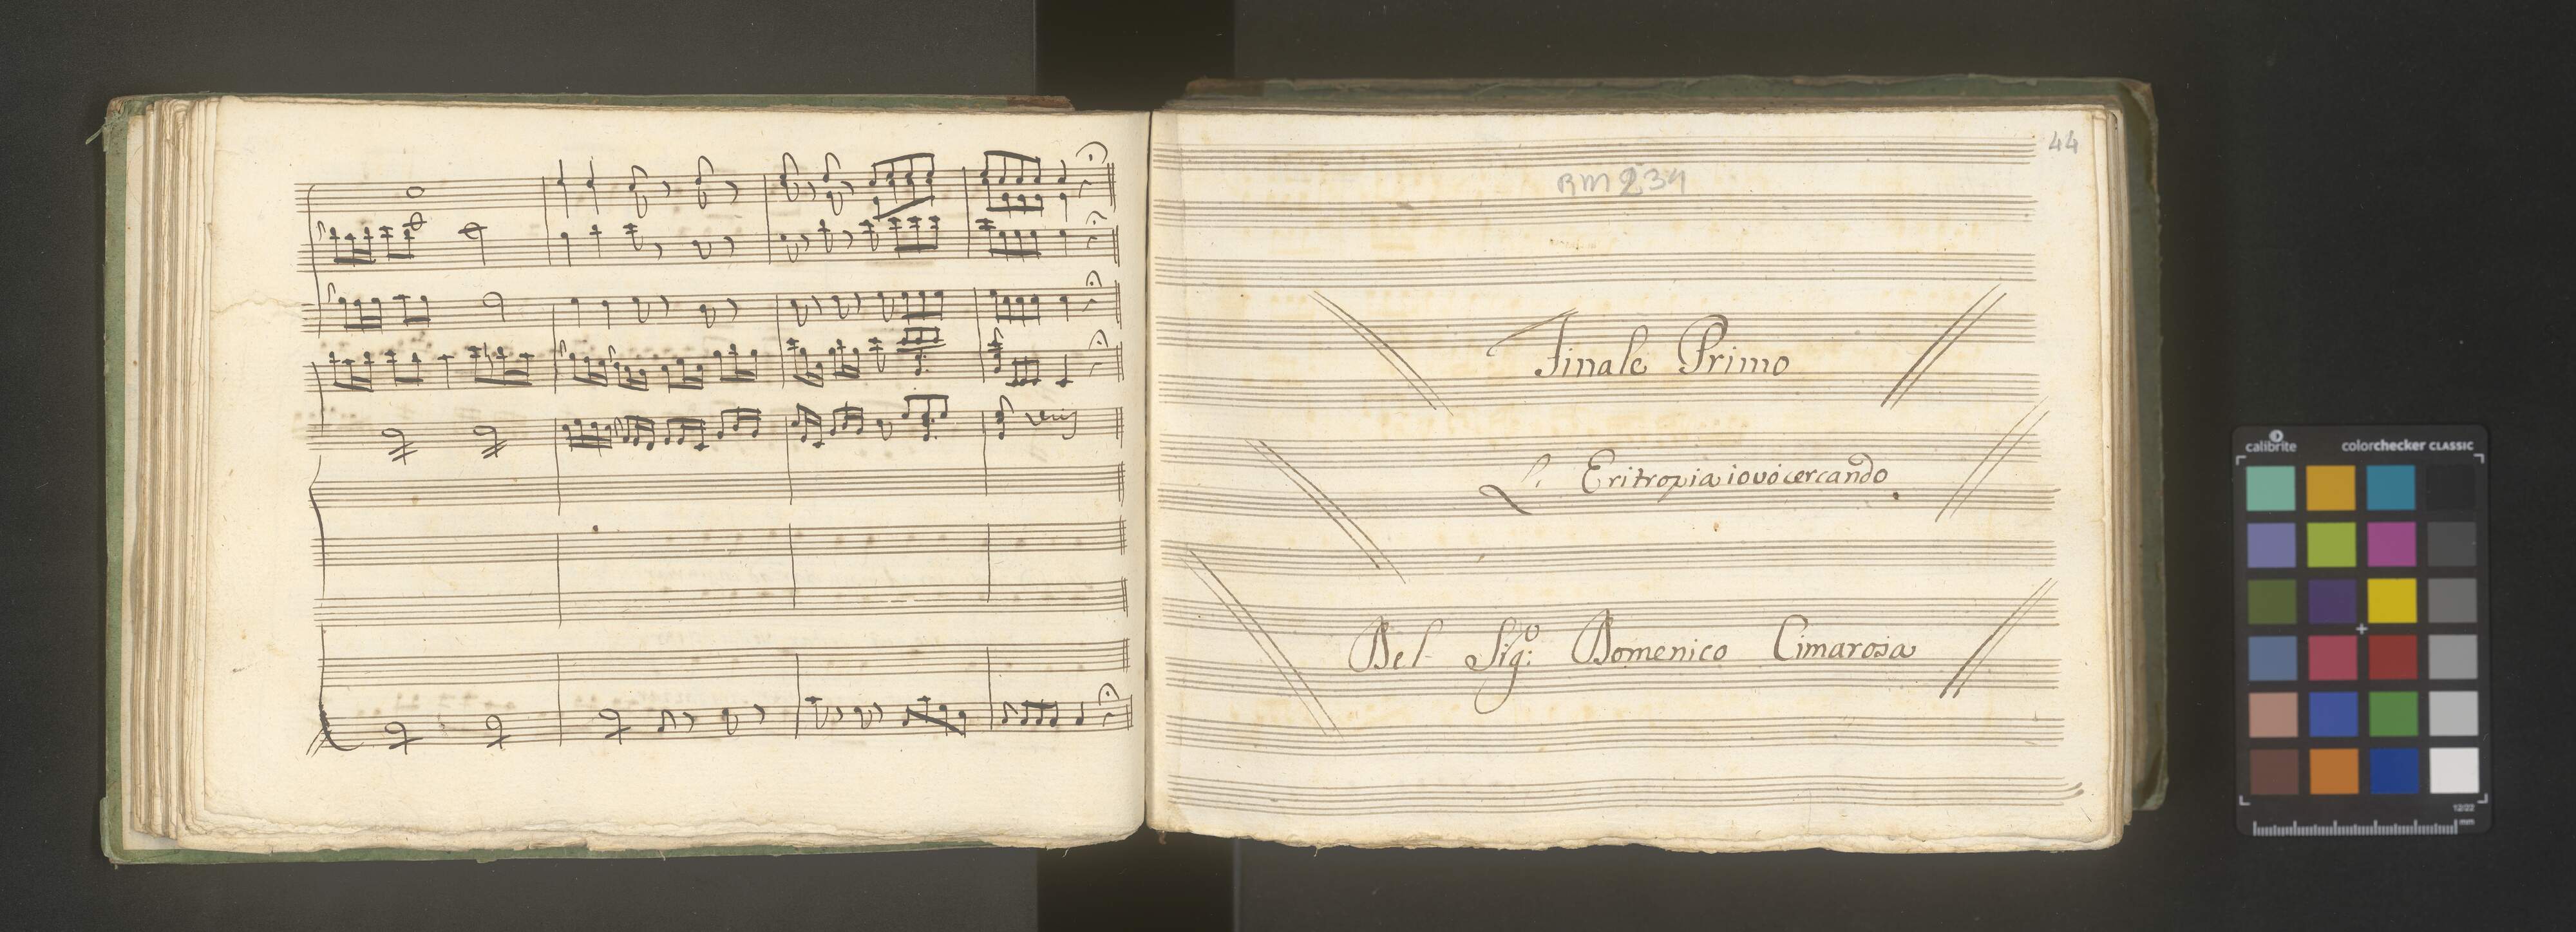 unis
44
RM 234
Finale Primo
L' Eritropia io vò cercando.
Del Sig:o Domenico Cimarosa
calibrite
colorchecker CLASSIC
12/22
mm